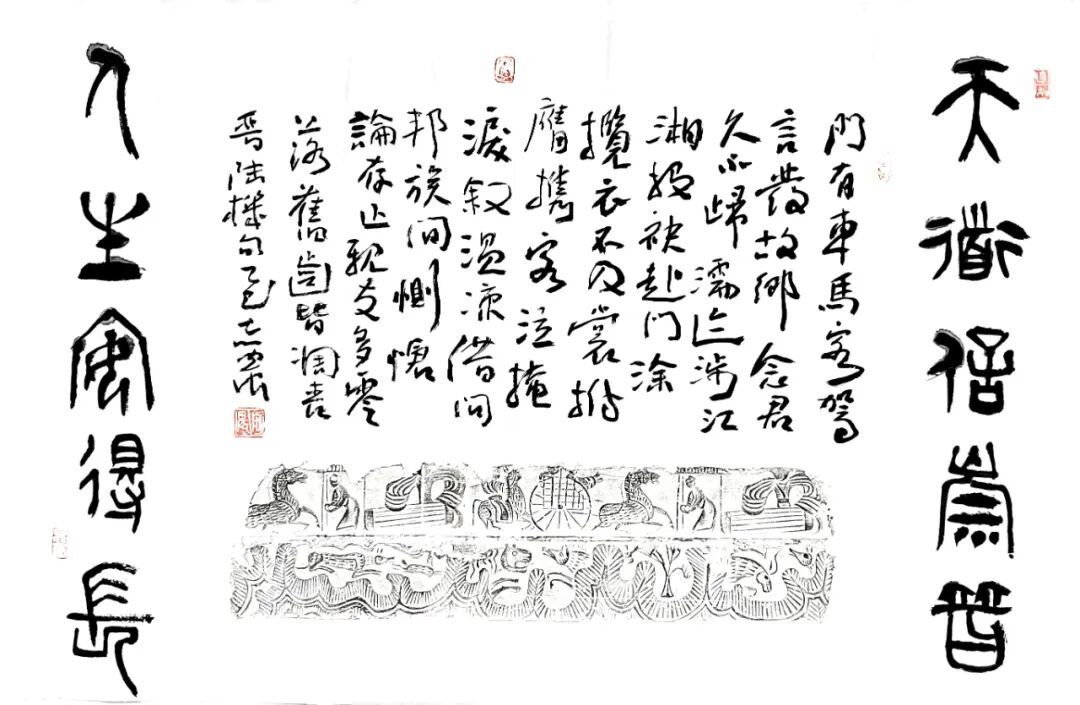 天道信崇替
門有車馬客駕
言發故鄉念君
久不歸濡迹涉江
湘投袂赴門涂
攬衣不及裳拊
膺攜客泣掩
淚叙溫涼借問
邦族間惻愴
論存亡親友多零
落舊齒皆凋喪
晉陸機句
人生安得長